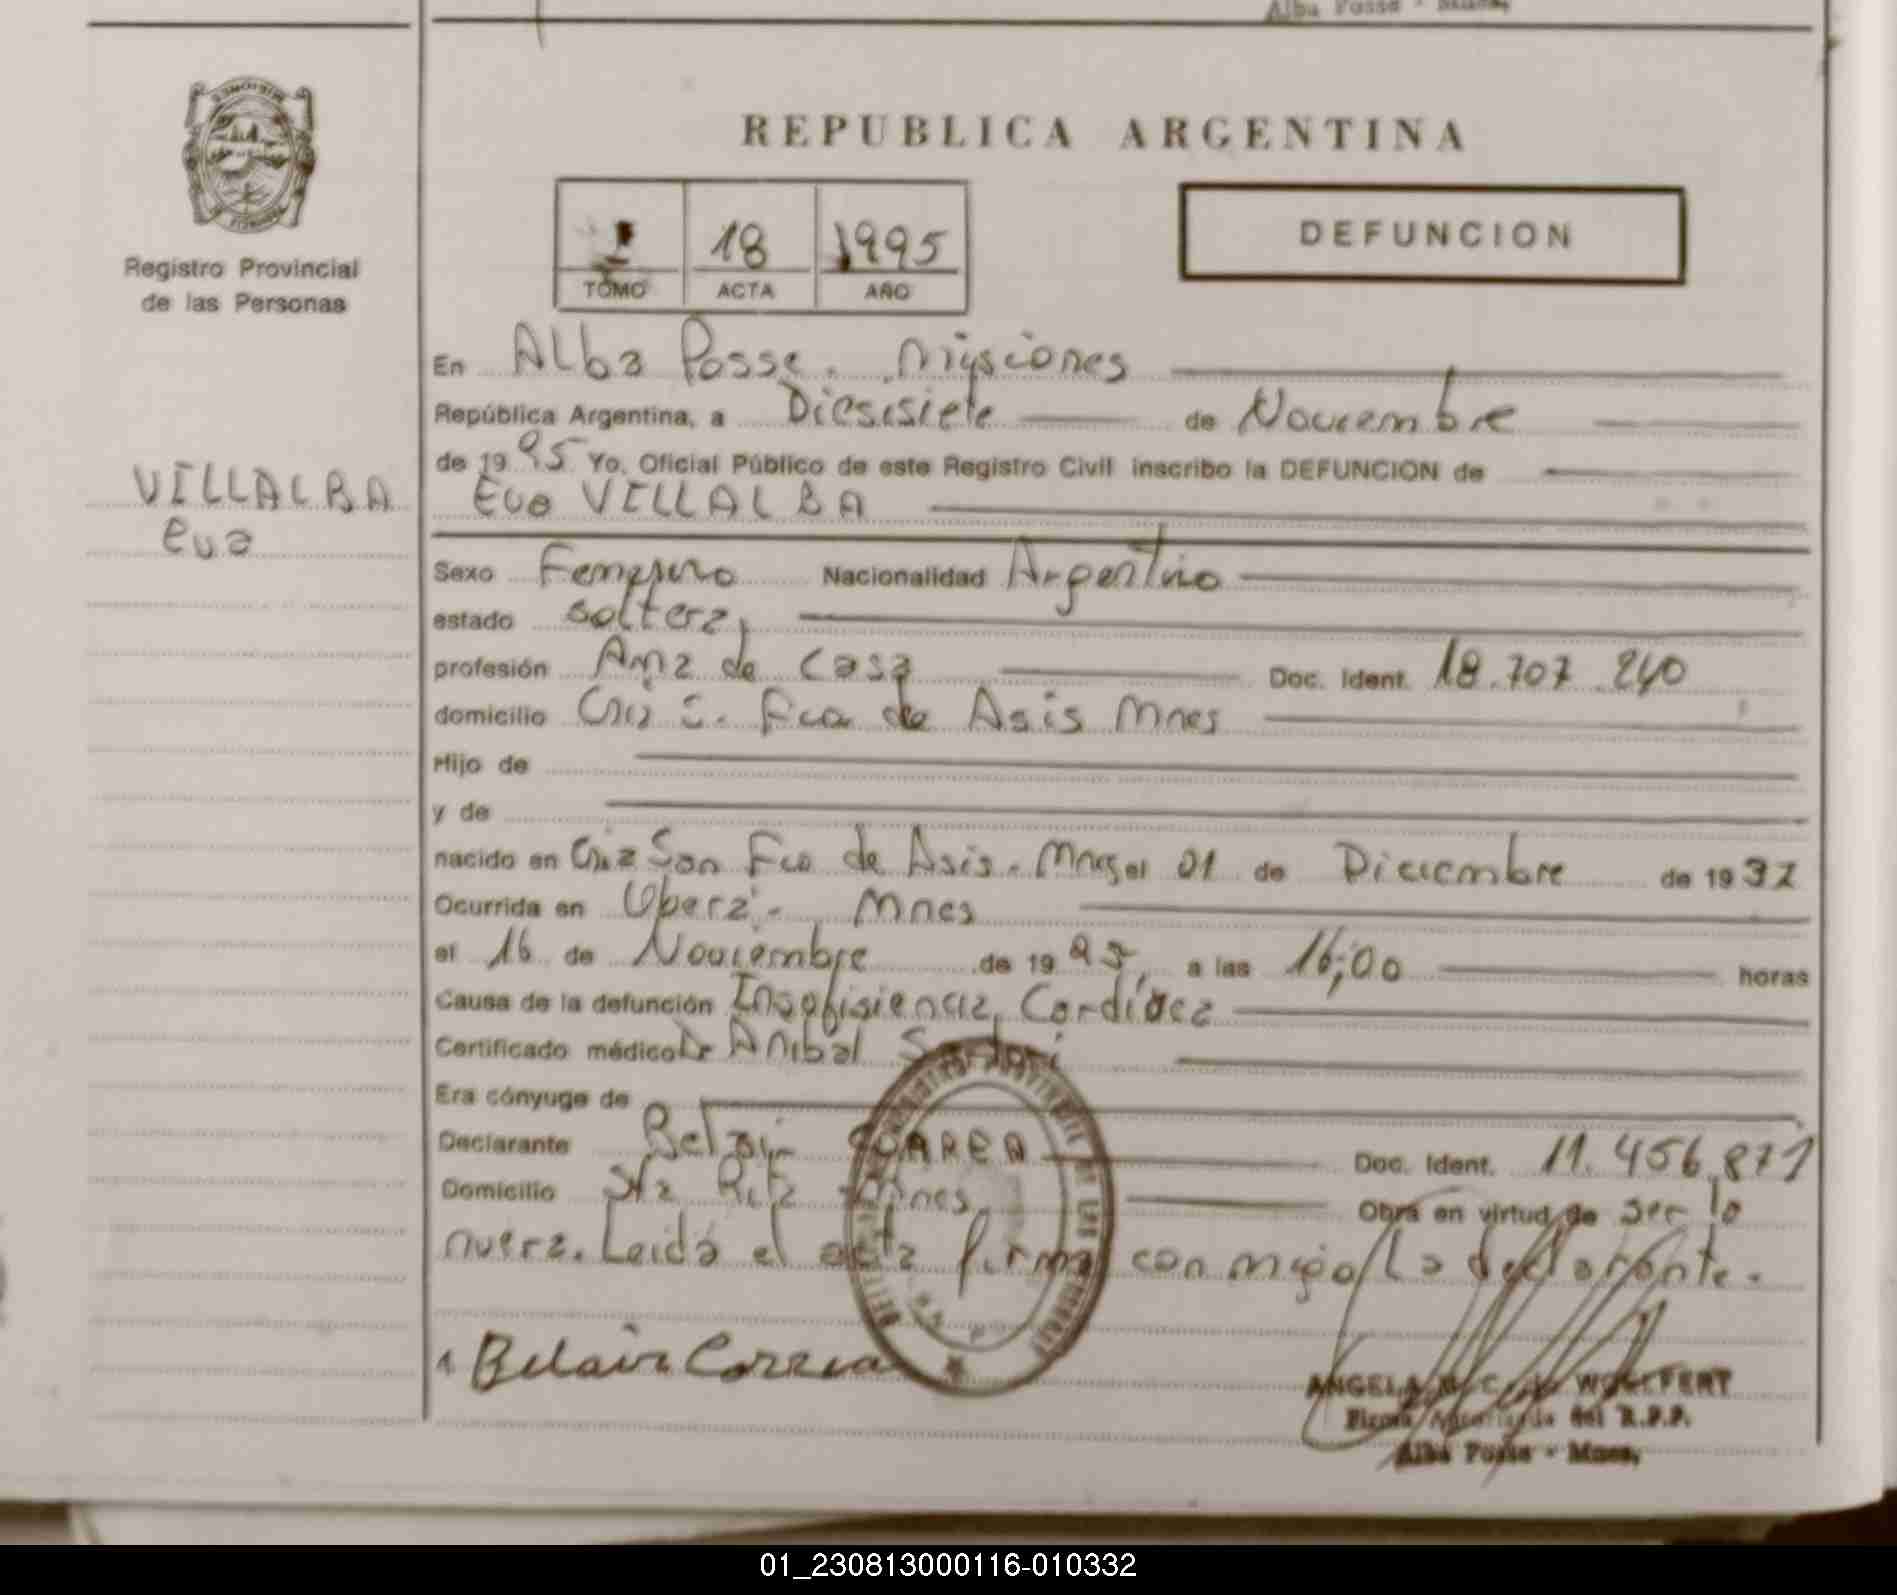 Alba Posse - Mnes,
MISIONES
REPUBLICA ARGENTINA
I 18 1995
TOMO ACTA AÑO
DEFUNCION
Registro Provincial
de las Personas
VILLALBA
Eva
En Alba Posse. Misiones
República Argentina, a Diesisiete de Noviembre
de 1995 Yo, Oficial Público de este Registro Civil inscribo la DEFUNCION de
Eva VILLALBA
Sexo Femenino Nacionalidad Argentino
estado soltera,
profesión Ama de Casa Doc. Ident. 18.707.240
domicilio S. Fco de Asis Mnes
Hijo de
y de
nacido en San Fco de Asis. Mnes el 01 de Diciembre de 1937
Ocurrida en Oberá. Mnes
el 16 de Noviembre de 1995, a las 16;00 horas
Causa de la defunción Insofisiencia Cardíaca
Certificado médico Dr Anibal
Era cónyuge de
Declarante Belair CORREA Doc. Ident. 11.456.871
Domicilio Sta Rita Mnes. Obra en virtud de ser lo
nuera. Leida el acta firma conmigo La declarante.
Belair Correa
ANGELA C. de WOLLFERT
Firma Autorizada del R.P.P.
Alba Posse - Mnes,
01_230813000116-010332